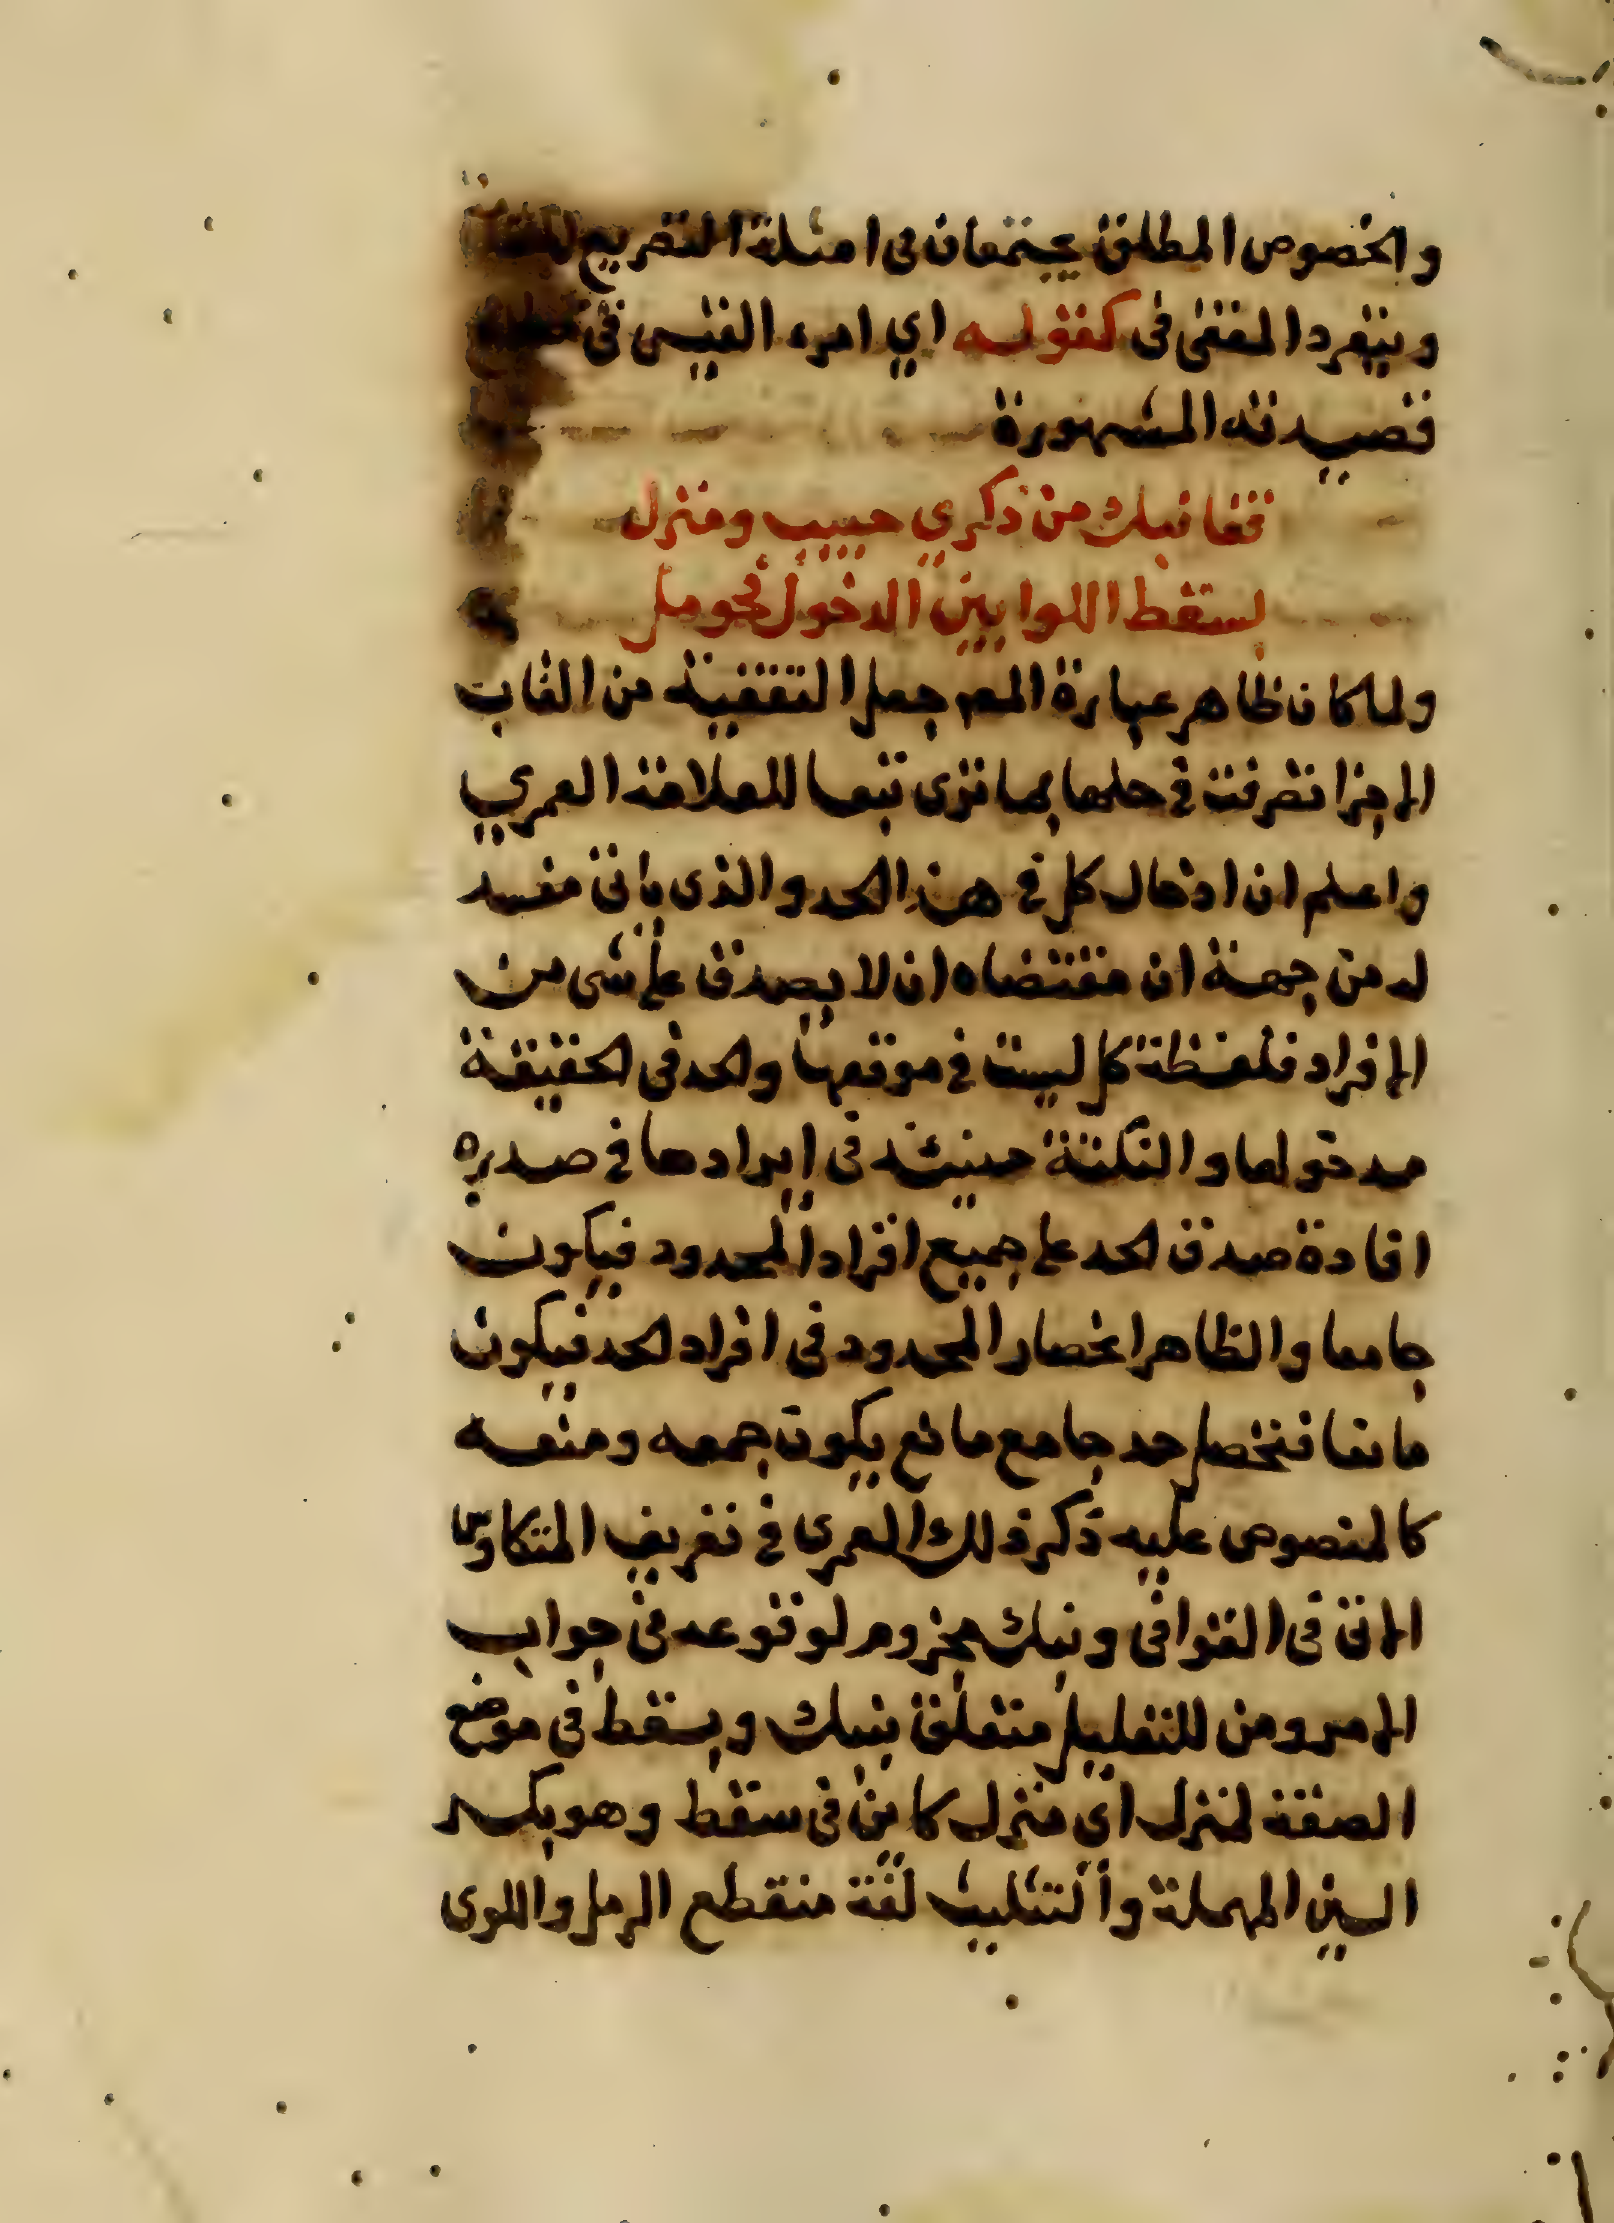 والخصوص المطلق يجتمعان في امثلة التصريع
وينفرد المقفى في كقوله اي امرء القيس في
قصيدته المشهورة
قفا نبك من ذكري حبيب ومنزل
بسقط اللوا بين الدخول فحومل
ولما كان ظاهر عبارة المص جعل التقفية من القاب
الاجزا تصرفت في حلها بما ترى تبعا للعلامة العمري
واعلم ان ادخال كل في هذا الحد والذى ياتى مفسد
له من جهة ان مقتضاه ان لا يصدق على شى من
الافراد فلفظة كل ليست في موقعها والحد في الحقيقة
مدخولها والنكتة حينئذ في ايرادها في صدره
افادة صدق الحد على جميع افراد المحدود فيكون
جامعا والظاهر انحصار المحدود في افراد الحد فيكون
مانعا فتحصل حد جامع مانع يكون جمعه ومنعه
كالمنصوص عليه ذكر ذلك العمرى في تعريف المتكاوس
الاتى في القوافى ونبك مجزوم لوقوعه في جواب
الامر ومن للتعليل متعلق بنبك وبسقط في موضع
الصفة لمنزل اي منزل كاين في سقط وهو بكسر
السين المهملة والتثليث لغة منقطع الرمل واللوى